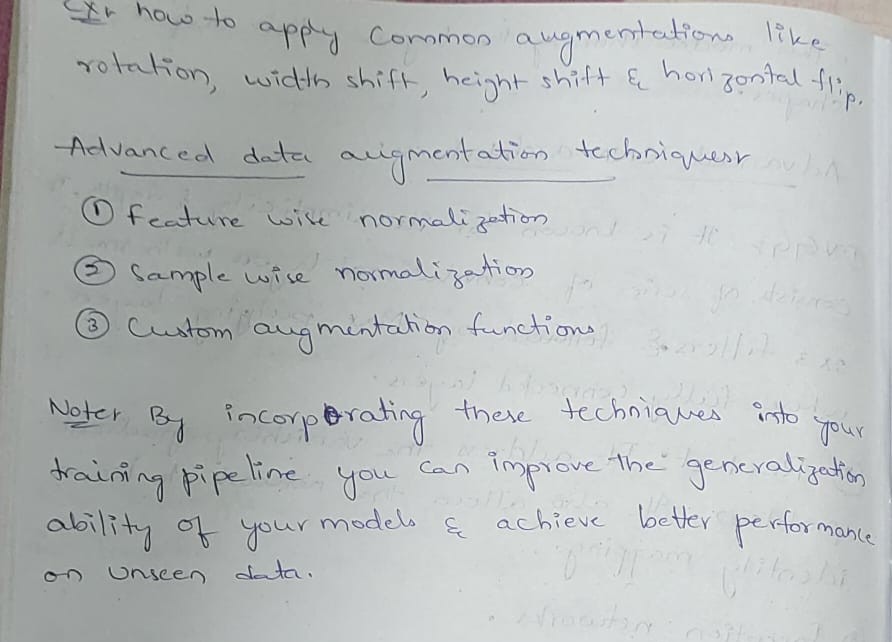 Ex:- how to apply common augmentations like
rotation, width shift, height shift & horizontal flip.
Advanced data augmentation techniques:-
① Feature wise normalization
② Sample wise normalization
③ Custom augmentation functions
Note:- By incorporating these techniques into your
training pipeline you can improve the generalization
ability of your models & achieve better performance
on unseen data.